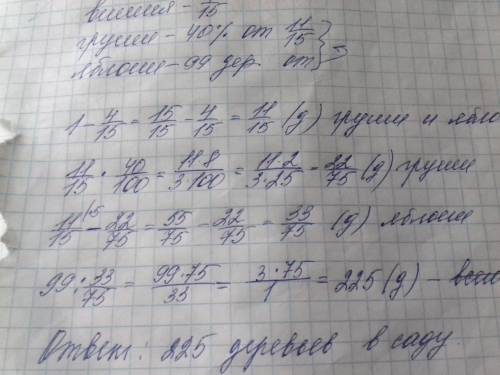 вишня - /15
груши - 40% от 11/15 } =
яблони - 99 дер. от
1 - 4/15 = 15/15 - 4/15 = 11/15 (д) груши и ябло
11/15 · 40/100 = 11·8/3·100 = 11·2/3·25 = 22/75 (д) груши
11/15 \5 - 22/75 = 55/75 - 22/75 = 33/75 (д) яблони
99 : 33/75 = 99·75/33 = 3·75/1 = 225 (д) - всег
Ответ: 225 деревьев в саду.